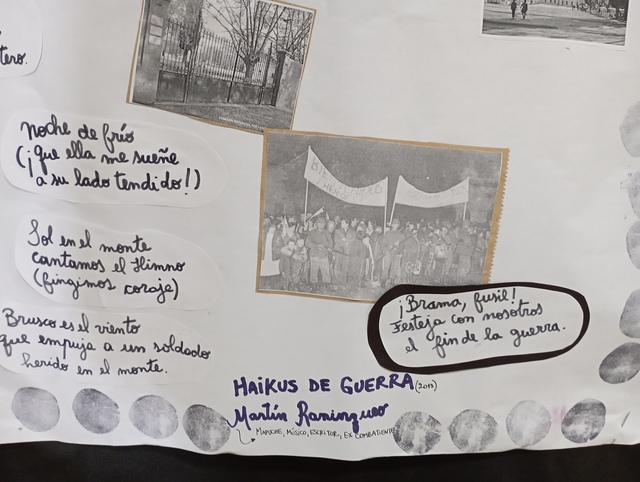 tero.
noche de frío
(¡que ella me sueñe
a su lado tendido!)
Sol en el monte
cantamos el Himno
(fingimos coraje)
Brusco es el viento
que empuja a un soldado
herido en el monte.
¡Brama, fusil!
Festeja con nosotros
el fin de la guerra.
HAIKUS DE GUERRA (2013)
Martín Raninqueo
MAPUCHE, MÚSICO, ESCRITOR, EX COMBATIENTE